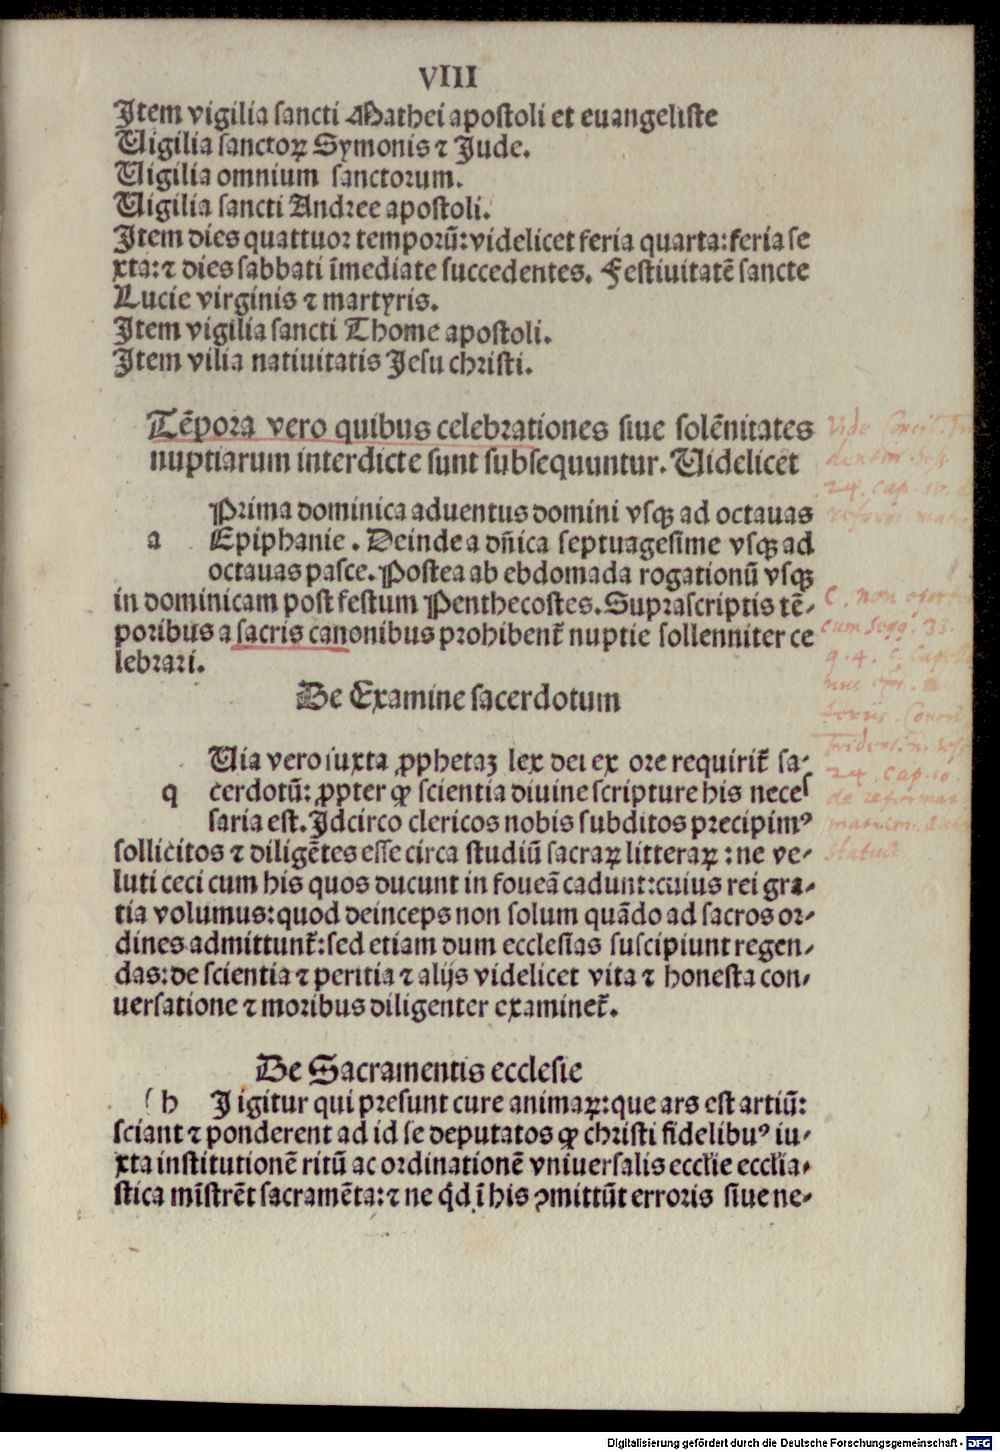 VIII
Item vigilia sancti Mathei apostoli et euangeliste
Uigilia sanctoꝝ Symonis ⁊ Jude.
Uigilia omnium sanctorum.
Uigilia sancti Andree apostoli.
Item dies quattuor temporū: videlicet feria quarta: feria se
xta: ⁊ dies sabbati īmediate succedentes. Festiuitatē sancte
Lucie virginis ⁊ martyris.
Item vigilia sancti Thome apostoli.
Item vilia natiuitatis Jesu christi.
Tēpora vero quibus celebrationes siue solēnitates
nuptiarum interdicte sunt subsequuntur. Uidelicet
Prima dominica aduentus domini vsqꝫ ad octauas
a Epiphanie. Deinde a dñica septuagesime vsqꝫ ad
octauas pasce. Postea ab ebdomada rogationū vsqꝫ
in dominicam post festum Penthecostes. Suprascriptis tē-
poribus a sacris canonibus prohibent̄ nuptie sollenniter ce
lebrari.
De Examine sacerdotum
Uia vero iuxta ꝓphetaꝫ lex dei ex ore requirit̄ sa-
q cerdotū: ꝓpter ꝙ scientia diuine scripture his neces
saria est. Idcirco clericos nobis subditos precipimꝰ
sollicitos ⁊ diligētes esse circa studiū sacraꝝ litteraꝝ: ne ve-
luti ceci cum his quos ducunt in foueā cadunt: cuius rei gra-
tia volumus: quod deinceps non solum quādo ad sacros or-
dines admittunt̄: sed etiam dum ecclesias suscipiunt regen-
das: de scientia ⁊ peritia ⁊ alijs videlicet vita ⁊ honesta con-
uersatione ⁊ moribus diligenter examinet̄.
De Sacramentis ecclesie
h I igitur qui presunt cure animaꝝ: que ars est artiū:
sciant ⁊ ponderent ad id se deputatos ꝙ christi fidelibuꝰ iu-
xta institutionē ritū ac ordinationē vniuersalis eccl̄ie eccl̄ia-
stica mīstrēt sacramēta: ⁊ ne qd̄ ī his ꝯmittūt erroris siue ne-
Vide Concil. Tri
dentin. sess.
24. cap. 10. d
reform. matri
c. non oport
cum seqq. 33.
q. 4. c. Capell
Concil.
Triden.
24. Cap. 10.
de reformat.
matrim.
Statuit
Digitalisierung gefördert durch die Deutsche Forschungsgemeinschaft - DFG